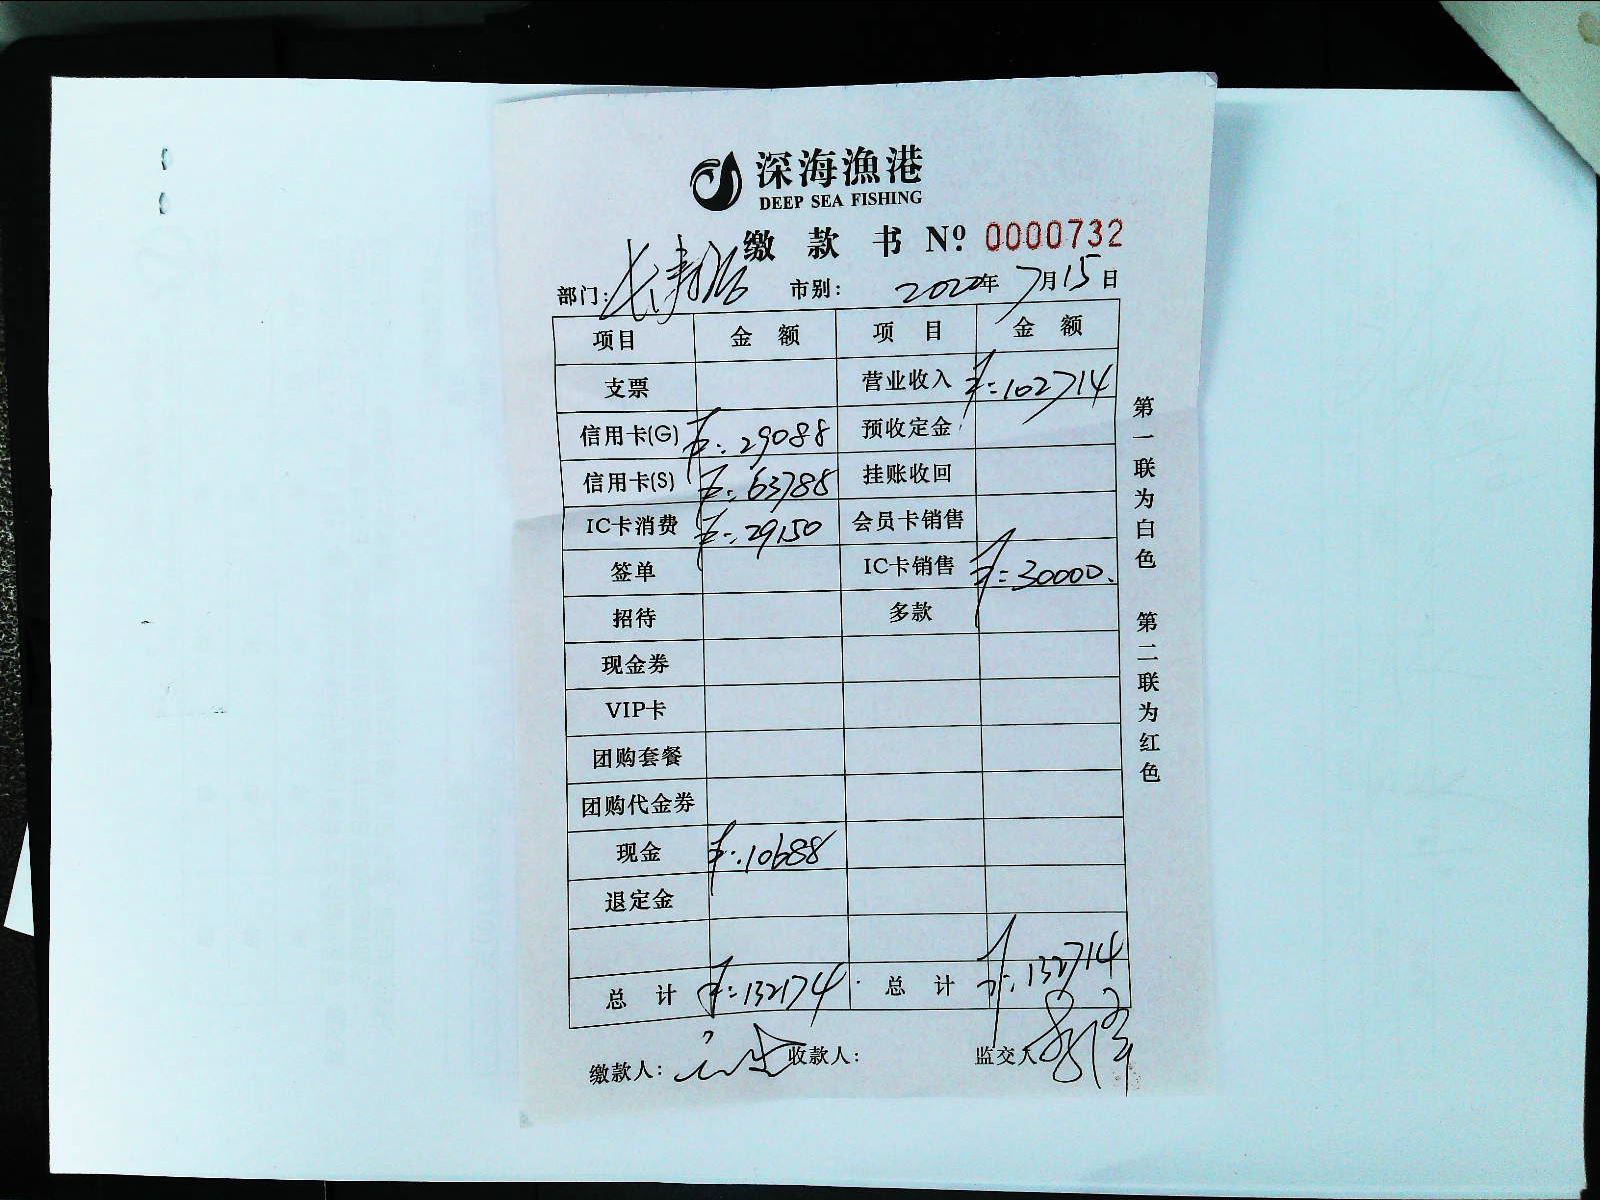 深海漁港
DEEP SEA FISHING
缴款书 Nº 0000732
部门: 长寿路 市别: 2020年7月15日
项目 金额 项目 金额
支票 营业收入 ¥:102714
信用卡(G) ¥:29088 预收定金
信用卡(S) ¥:63788 挂账收回
IC卡消费 ¥:29150 会员卡销售
签单 IC卡销售 ¥:30000.
招待 多款
现金券
VIP卡
团购套餐
团购代金券
现金 ¥:10688
退定金
总计 ¥:132174 总计 ¥:132714
缴款人: 收款人: 监交人
第一联为白色 第二联为红色